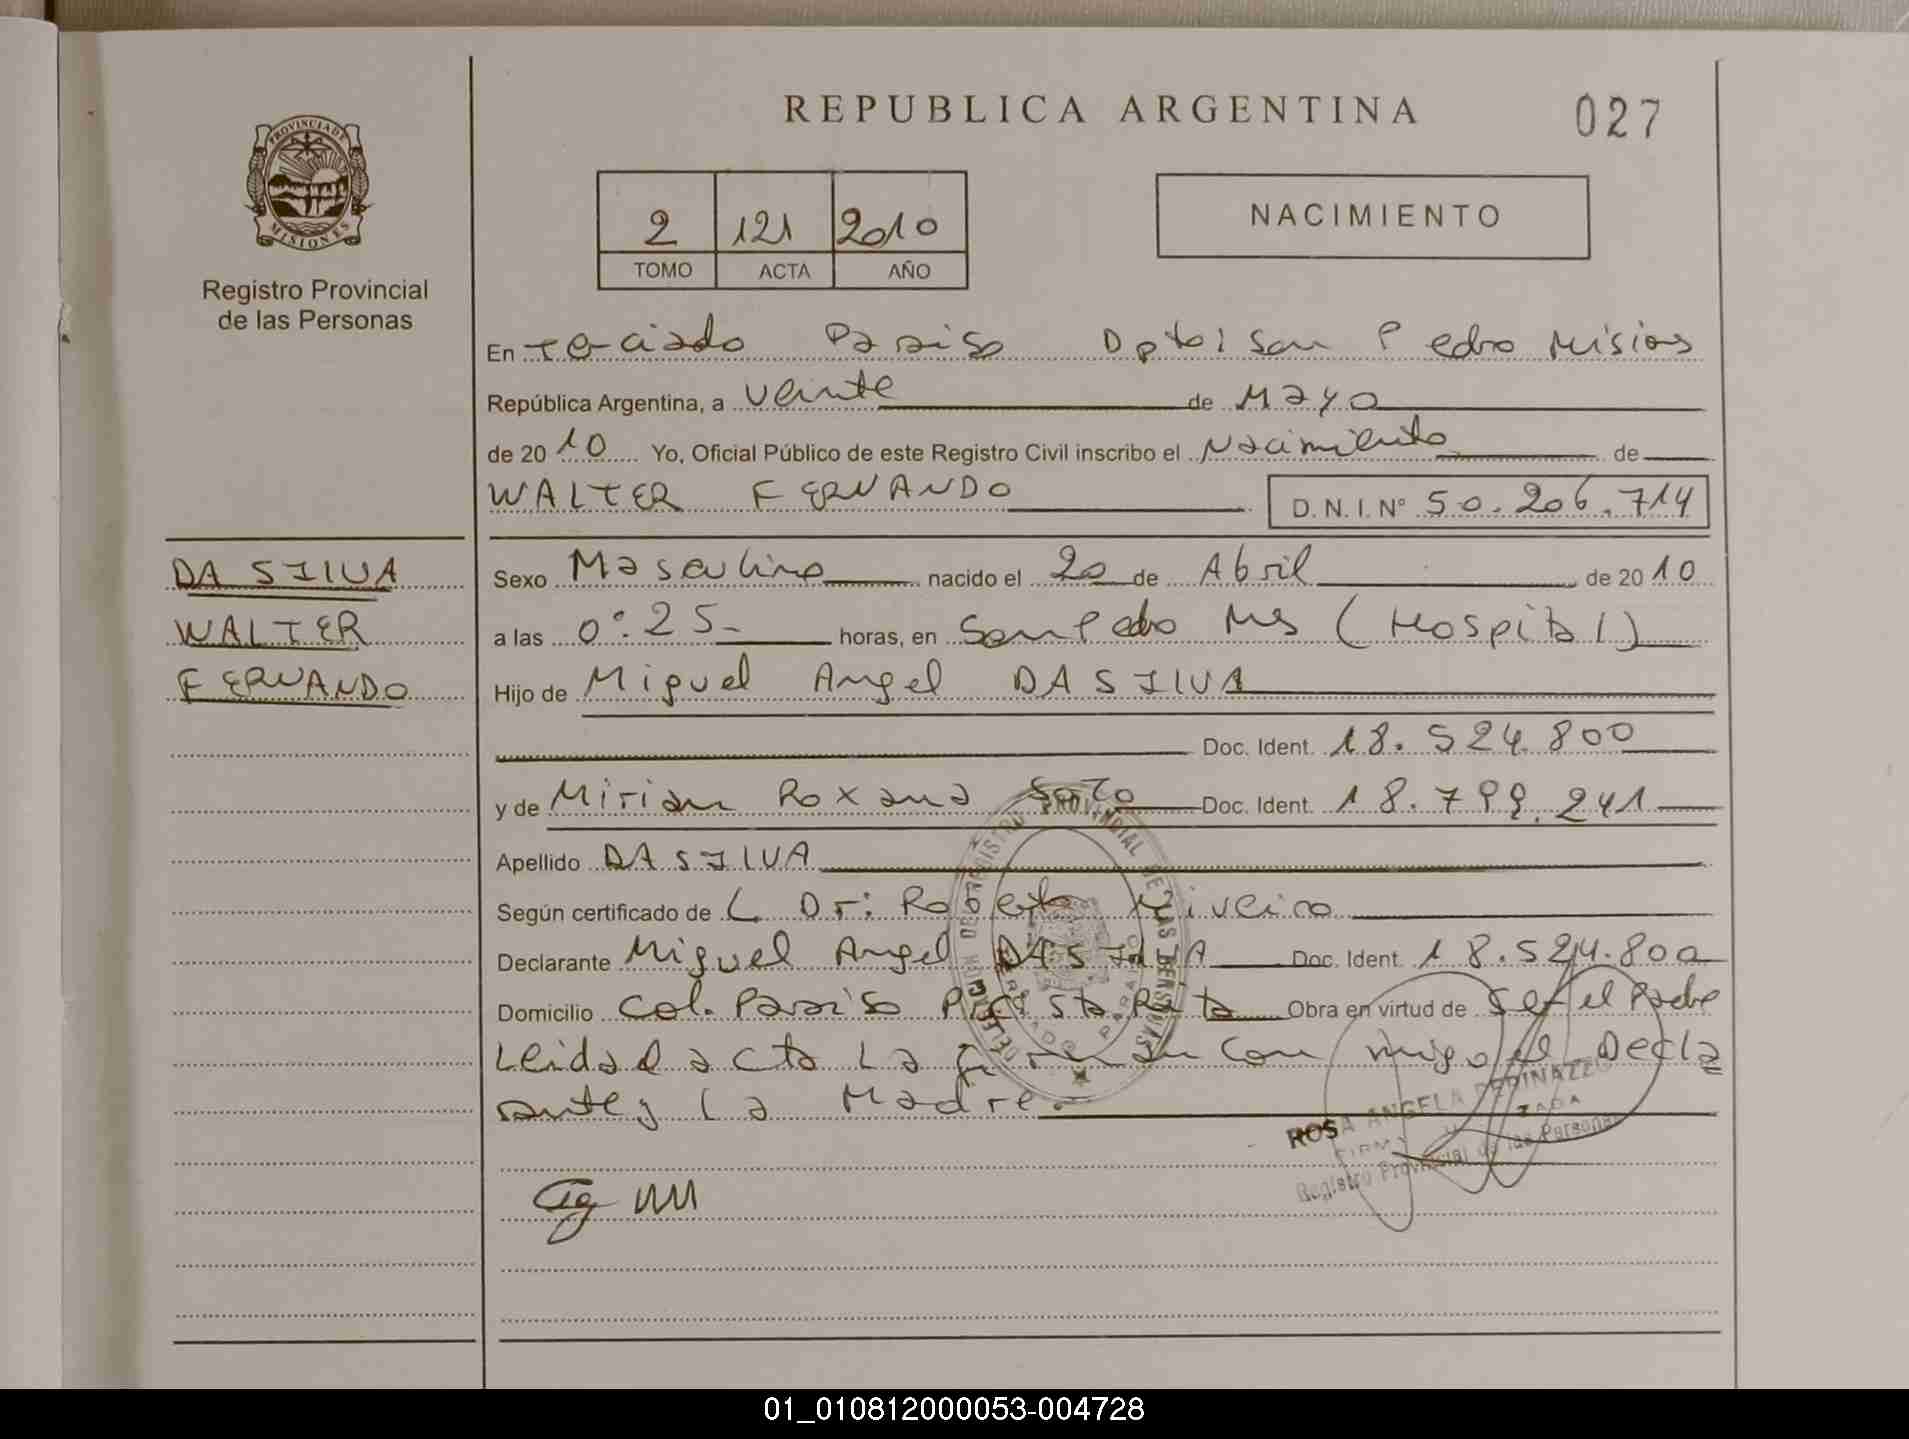 REPUBLICA ARGENTINA
027
PROVINCIA DE
MISIONES
Registro Provincial
de las Personas
2 121 2010
TOMO ACTA AÑO
NACIMIENTO
En Terciado Paraiso Dpto: San Pedro Misiones
República Argentina, a veinte de Mayo
de 2010 Yo, Oficial Público de este Registro Civil inscribo el Nacimiento de
WALTER FERNANDO D.N.I. Nº 50.206.714
DA SILVA
WALTER
FERNANDO
Sexo Masculino nacido el 20 de Abril de 2010
a las 0:25 horas, en San Pedro Ms (Hospital)
Hijo de Miguel Angel DA SILVA
Doc. Ident. 18.524.800
y de Mirian Roxana Soto Doc. Ident. 18.799.241
Apellido DA SILVA
Según certificado de Dr: Roberto
Declarante Miguel Angel DA SILVA Doc. Ident. 18.524.800
Domicilio Col. Paraiso Pic Sta Rita Obra en virtud de Ser el Padre
Leida el acta La firman con migo el Decla
rante y La Madre.
ROSA ANGELA
Registro Provincial de las Personas
01_010812000053-004728